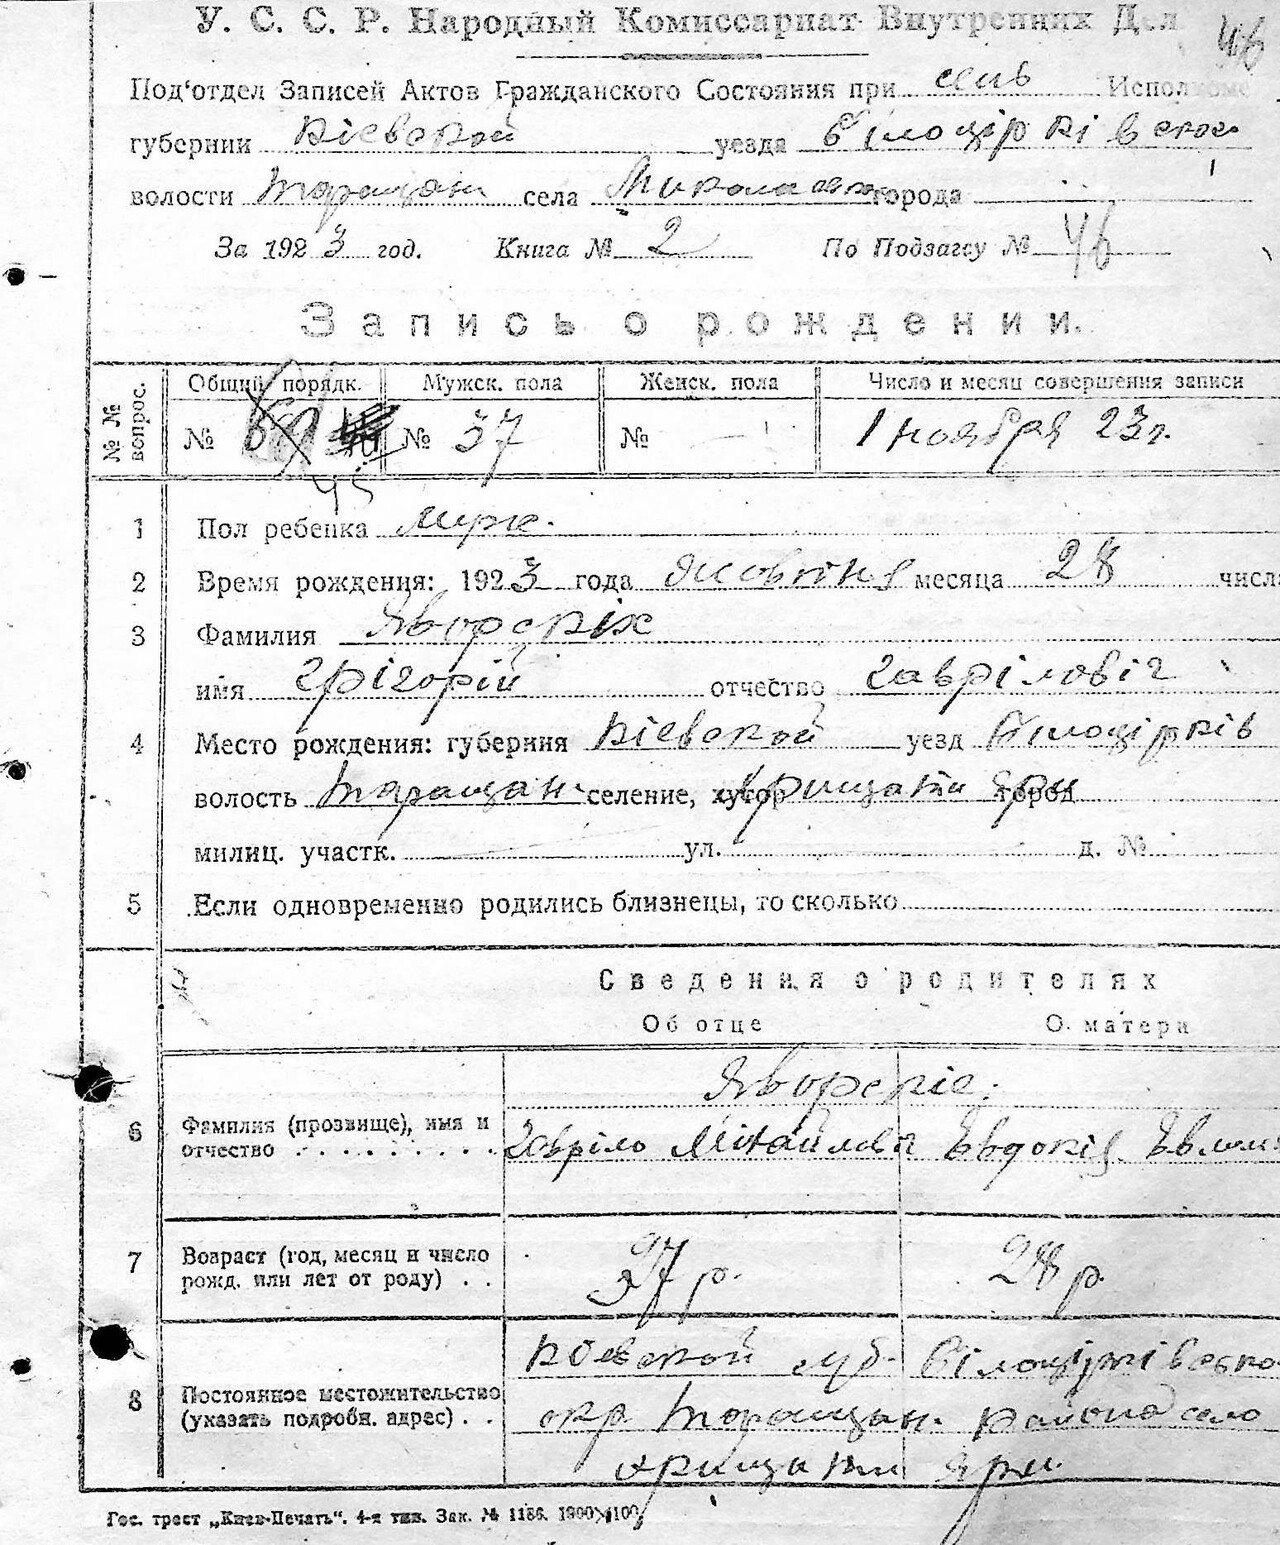 У. С. С. Р. Народный Комиссариат Внутренних Дел
46
Под‘отдел Записей Актов Гражданского Состояния при селв Исполкоме
губернии Кіевской уезда Білоцірківской
волости Таращан села Миколаевк города
За 1923 год. Книга № 2 По Подзагсу № 46
Запись о рождении.
№ № вопрос. Общий порядк. Мужск. пола Женск. пола Число и месяц совершения записи
№ № 37 № — 1 ноября 23 г.
45
1 Пол ребенка муж.
2 Время рождения: 1923 года жовтня месяца 28 числа
3 Фамилия Яворскіх
имя Грігорій отчество Гавріловіч
4 Место рождения: губерния Кіевской уезд Білоцірків
волость Таращан. селение, хутор Хрищаті Яри город
милиц. участк. ул. д. №
5 Если одновременно родились близнецы, то сколько
Сведения о родителях
Об отце О матери
Яворскіе.
6 Фамилия (прозвище), имя и
отчество Гавріло Міхайловіч Евдокія
7 Возраст (год, месяц и число
рожд. или лет от роду) 37 р. 28 р.
Кіевской губ. Білоцірківско
8 Постоянное местожительство
(указать подробн. адрес) окр Таращан. района село
Хрищаті Яри.
Гос. трест „Киев-Печать“. 4-я тип. Зак. № 1186. 1900×100